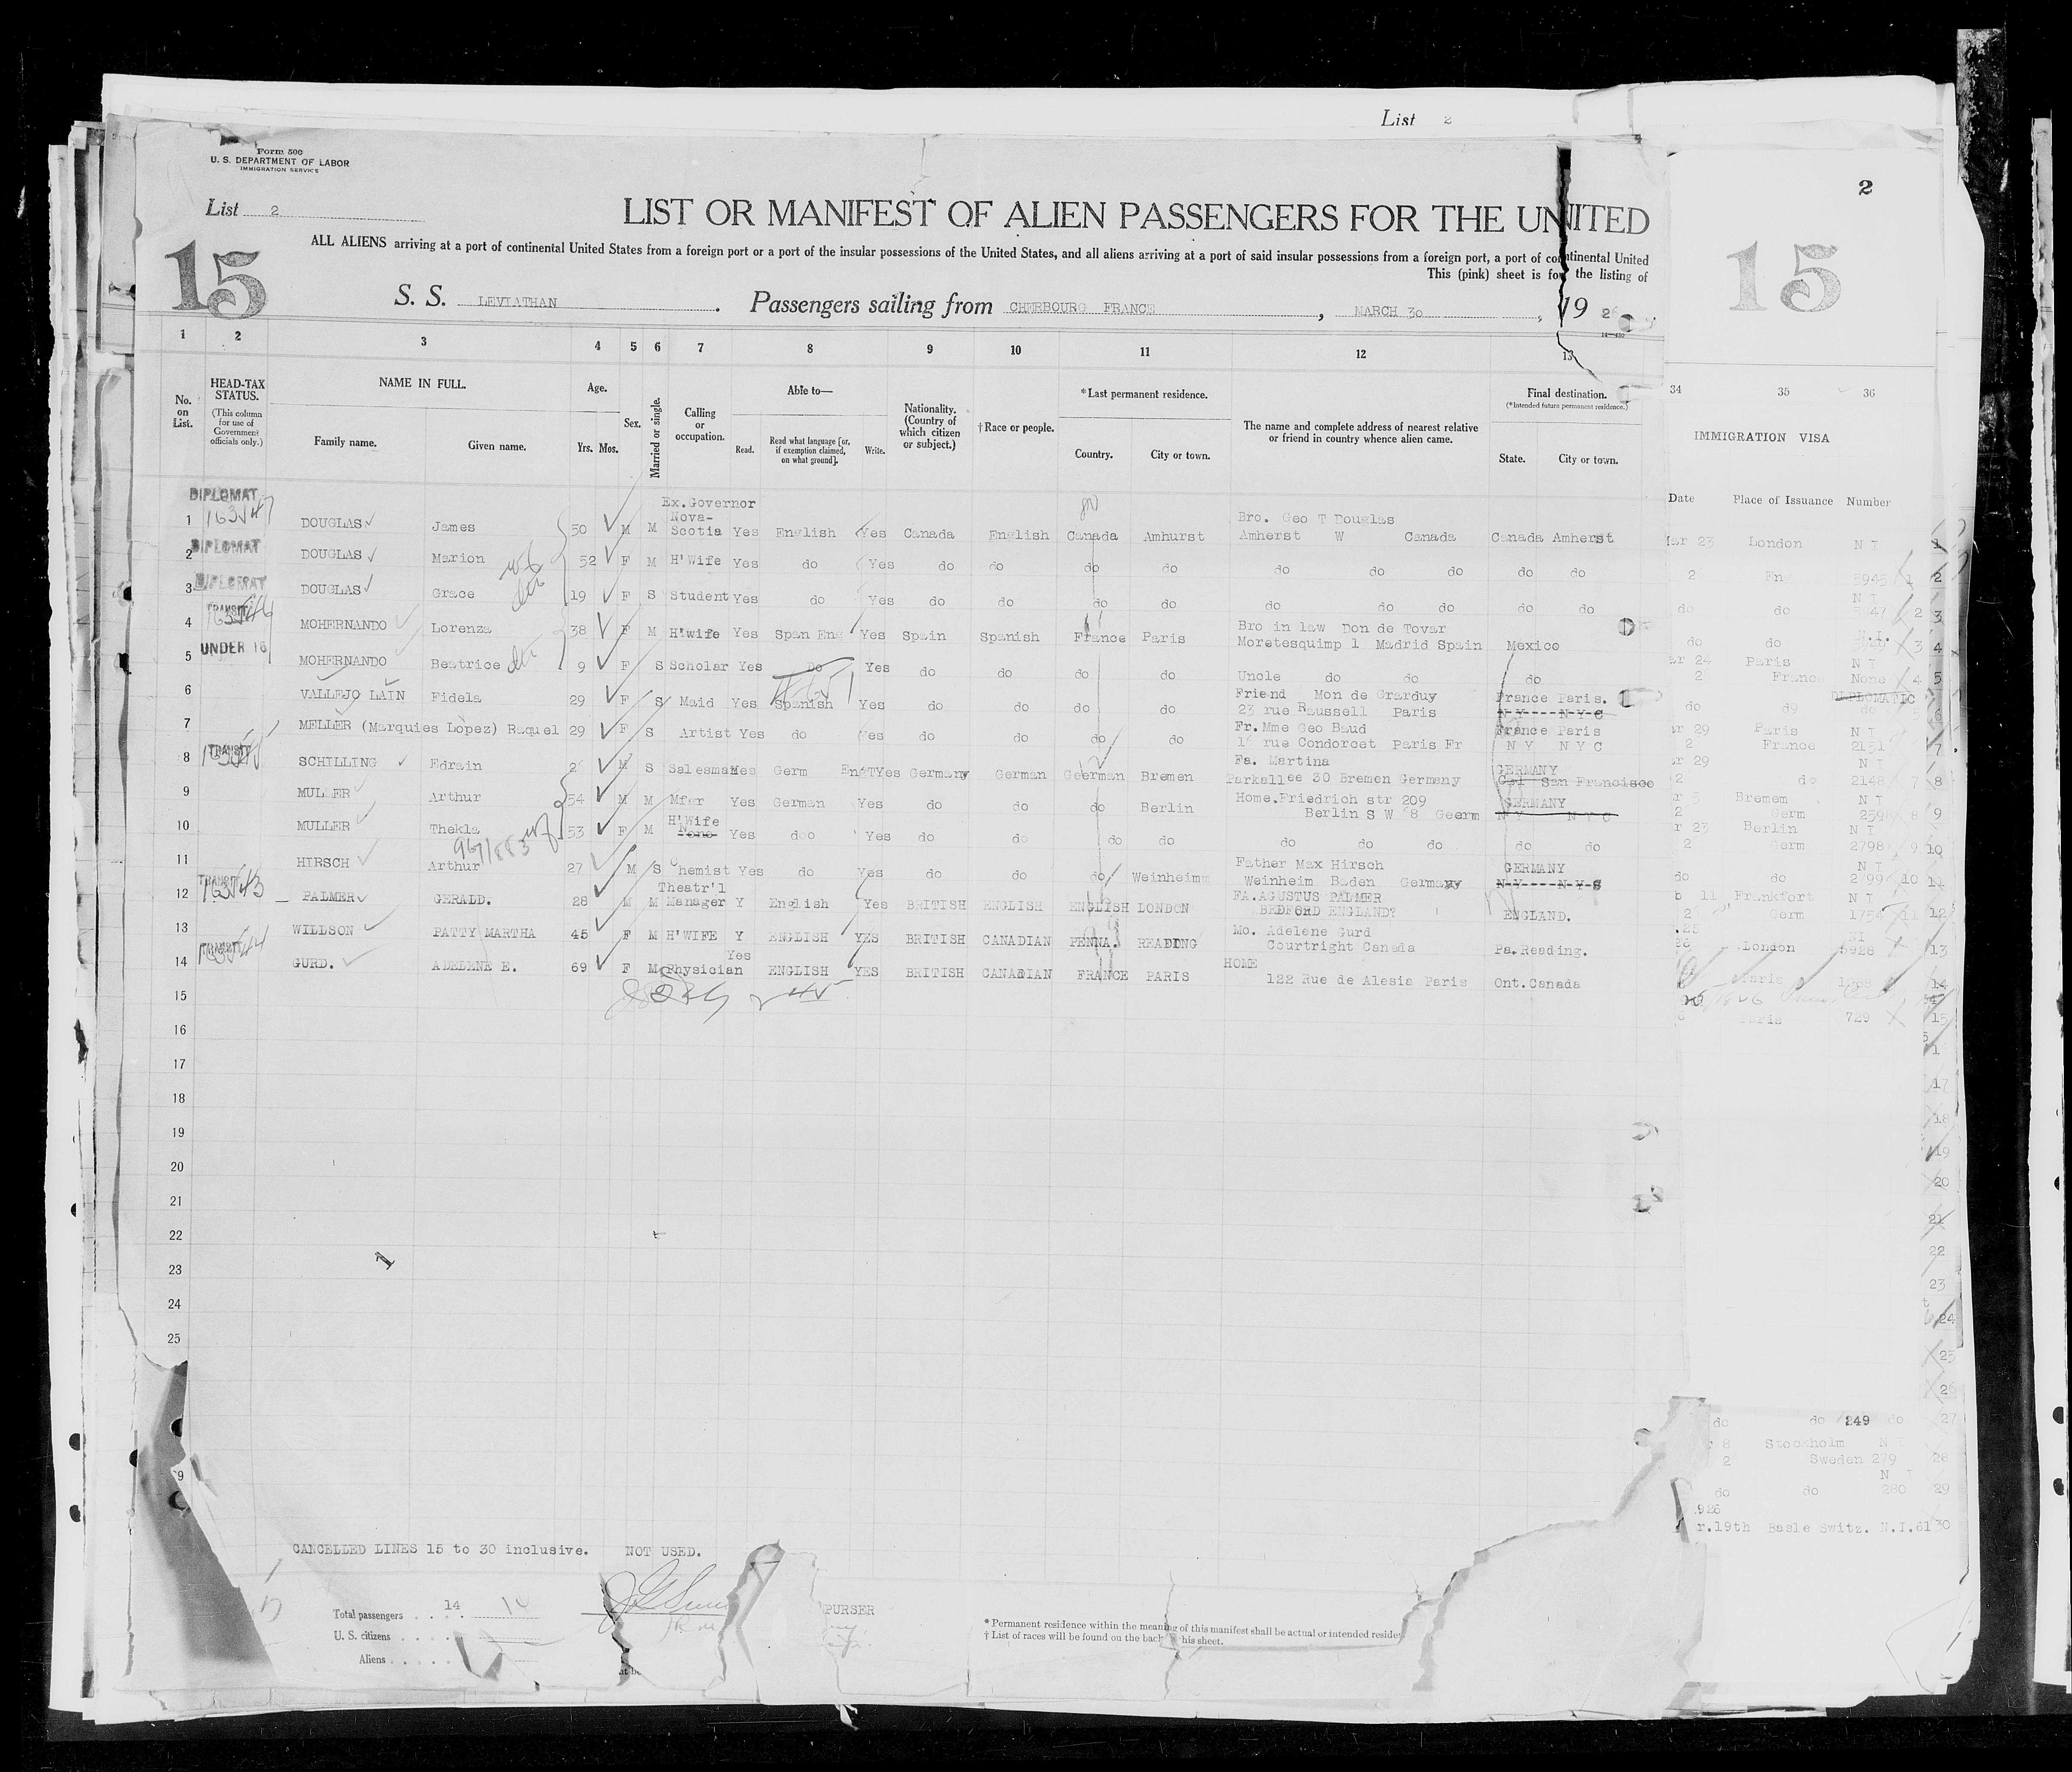 List 2
Form 500
U. S. DEPARTMENT OF LABOR
IMMIGRATION SERVICE
2
List 2
LIST OR MANIFEST OF ALIEN PASSENGERS FOR THE UNITED
15
15
ALL ALIENS arriving at a port of continental United States from a foreign port or a port of the insular possessions of the United States, and all aliens arriving at a port of said insular possessions from a foreign port, a port of continental United
This (pink) sheet is for the listing of
S. S. LEVIATHAN. Passengers sailing from CHERBOURG FRANCE, MARCH 30, 1926
1 2 3 4 5 6 7 8 9 10 11 12 13 34 35 36
No. on List.
HEAD-TAX STATUS.
(This column for use of Government officials only.)
NAME IN FULL.
Family name. Given name.
Age.
Yrs. Mos.
Sex.
Married or single.
Calling or occupation.
Able to—
Read. Read what language [or, if exemption claimed, on what ground]. Write.
Nationality. (Country of which citizen or subject.)
†Race or people.
*Last permanent residence.
Country. City or town.
The name and complete address of nearest relative or friend in country whence alien came.
Final destination.
(*Intended future permanent residence.)
State. City or town.
IMMIGRATION VISA
Date Place of Issuance Number
DIPLOMAT
1 DOUGLAS James 50 M M Ex.Governor Nova-Scotia Yes English Yes Canada English Canada Amhurst Bro. Geo T Douglas Amherst W Canada Canada Amherst
DIPLOMAT
2 DOUGLAS Marion 52 F M H'Wife Yes do Yes do do do do do do do do do
DIPLOMAT
3 DOUGLAS Grace 19 F S Student Yes do Yes do do do do do do do do do
TRANSIT
4 MOHERNANDO Lorenza 38 F M H'wife Yes Span Eng Yes Spain Spanish France Paris Bro in law Don de Tovar Moretesquimp 1 Madrid Spain Mexico
UNDER 16
5 MOHERNANDO Beatrice 9 F S Scholar Yes Do Yes do do do do Uncle do do do
6 VALLEJO LAIN Fidela 29 F S Maid Yes Spanish Yes do do do do Friend Mon de Grarduy 23 rue Raussell Paris France Paris. N Y N Y C
7 MELLER (Marquies Lopez) Raquel 29 F S Artist Yes do Yes do do do do Fr. Mme Geo Baud 16 rue Condorcet Paris Fr France Paris N Y N Y C
TRANSIT
8 SCHILLING Edrain 26 M S Salesman Yes Germ Eng Yes Germany German Geerman Bremen Fa. Martina Parkallee 30 Bremen Germany GERMANY Cal San Francisco
9 MULLER Arthur 54 M M Mfer Yes German Yes do do do Berlin Home.Friedrich str 209 Berlin S W 68 Geerm GERMANY N Y N Y C
10 MULLER Thekla 53 F M H'Wife None Yes doo Yes do do do do do do do do do
11 HIRSCH Arthur 27 M S Chemist Yes do Yes do do do Weinheim Father Max Hirsch Weinheim Baden Germany GERMANY N Y N Y S
TRANSIT
12 PALMER GERALD. 28 M M Theatr'l Manager Y English Yes BRITISH ENGLISH ENGLISH LONDON FA.AGUSTUS PALMER BEDFORD ENGLAND? ENGLAND.
13 WILLSON PATTY MARTHA 45 F M H'WIFE Y ENGLISH YES BRITISH CANADIAN PENNA. READING Mo. Adelene Gurd Courtright Canada Pa.Reading.
TRANSIT
14 GURD. ADELENE E. 69 F M Physician Yes ENGLISH YES BRITISH CANADIAN FRANCE PARIS HOME 122 Rue de Alesia Paris Ont.Canada
15
16
17
18
19
20
21
22
23
24
25
Mar 23 London N I 1
Eng 5945 1 2
do do N I 5947 2 3
do do N.I. 3 4
ar 24 Paris N I
2 France None 4 5
DIPLOMATIC
do do do 6
ar 29 Paris N I
2 France 2151 7
ar 29 N I
do 2148 7 8
Bremem N I
Germ 2598 8 9
r 23 Berlin N I
2 Germ 2798 9 10
do do N I 2799 10 11
b 11 Frankfort N I
26 Germ 1754 11 12
London NI 5928 13
Paris 14
Paris 729 15
17
18
19
20
21
22
23
24
25
26
do do 249 do 27
8 Stockholm N I
2 Sweden 279 28
N I
do do 280 29
926
r.19th Basle Switz. N.I.61 30
CANCELLED LINES 15 to 30 inclusive. NOT USED.
Total passengers 14 14
U. S. citizens
Aliens
PURSER
* Permanent residence within the meaning of this manifest shall be actual or intended reside
† List of races will be found on the back this sheet.